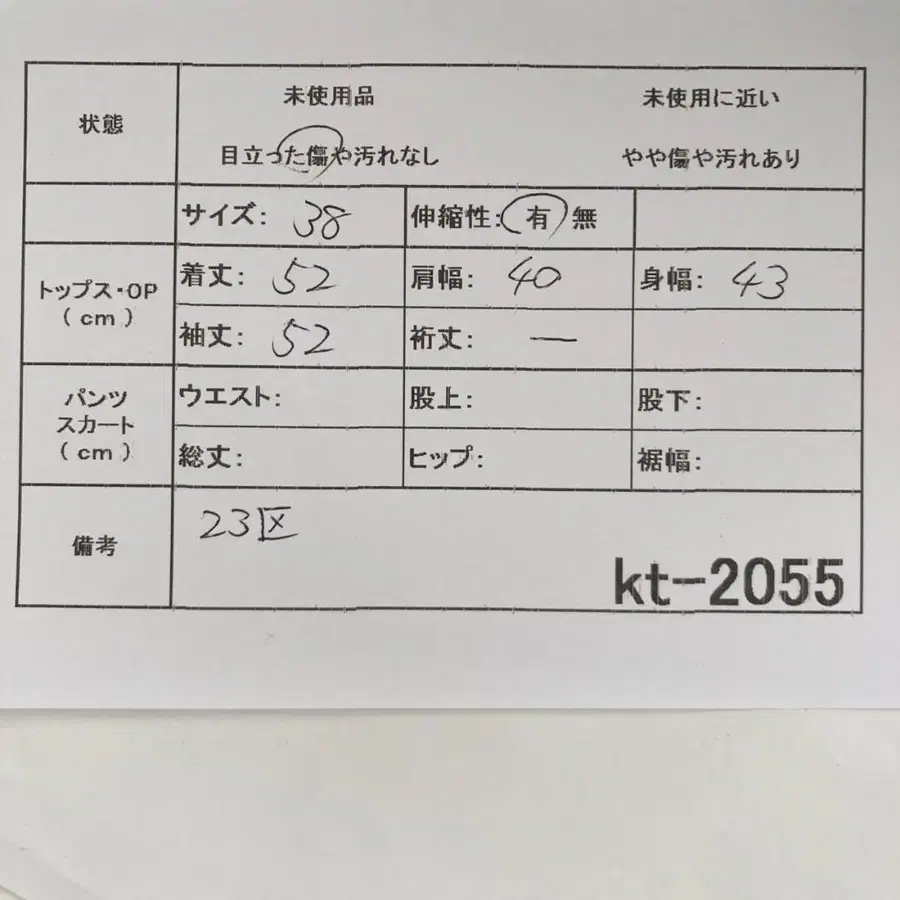 状態
未使用品 未使用に近い
目立った傷や汚れなし やや傷や汚れあり
サイズ: 38 伸縮性: 有 無
トップス・OP
(cm)
着丈: 52 肩幅: 40 身幅: 43
袖丈: 52 裄丈: —
パンツ
スカート
(cm)
ウエスト: 股上: 股下:
総丈: ヒップ: 裾幅:
備考
23区
kt-2055